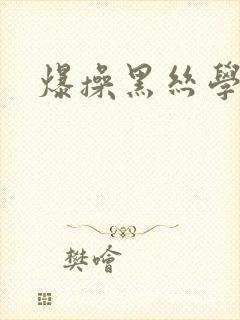 爆操黑丝學
樊噲